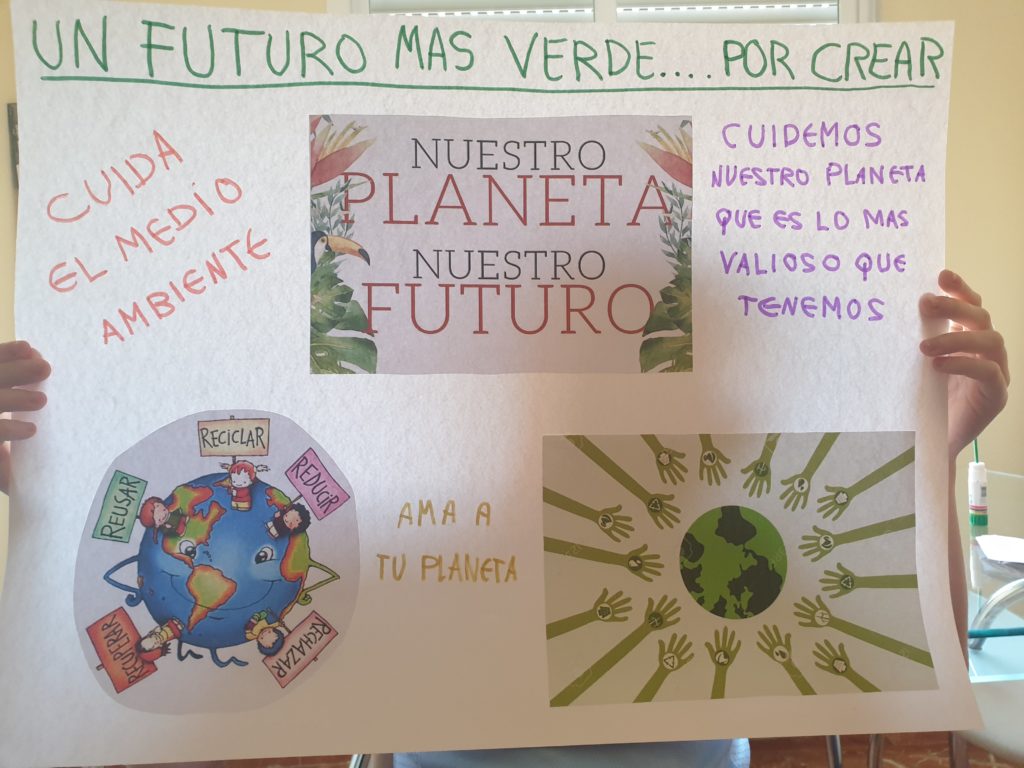 UN FUTURO MAS VERDE.... POR CREAR
CUIDA
EL MEDIO
AMBIENTE
NUESTRO
PLANETA
NUESTRO
FUTURO
CUIDEMOS
NUESTRO PLANETA
QUE ES LO MAS
VALIOSO QUE
TENEMOS
RECICLAR
REDUCIR
REUSAR
RECUPERAR
RECHAZAR
AMA A
TU PLANETA